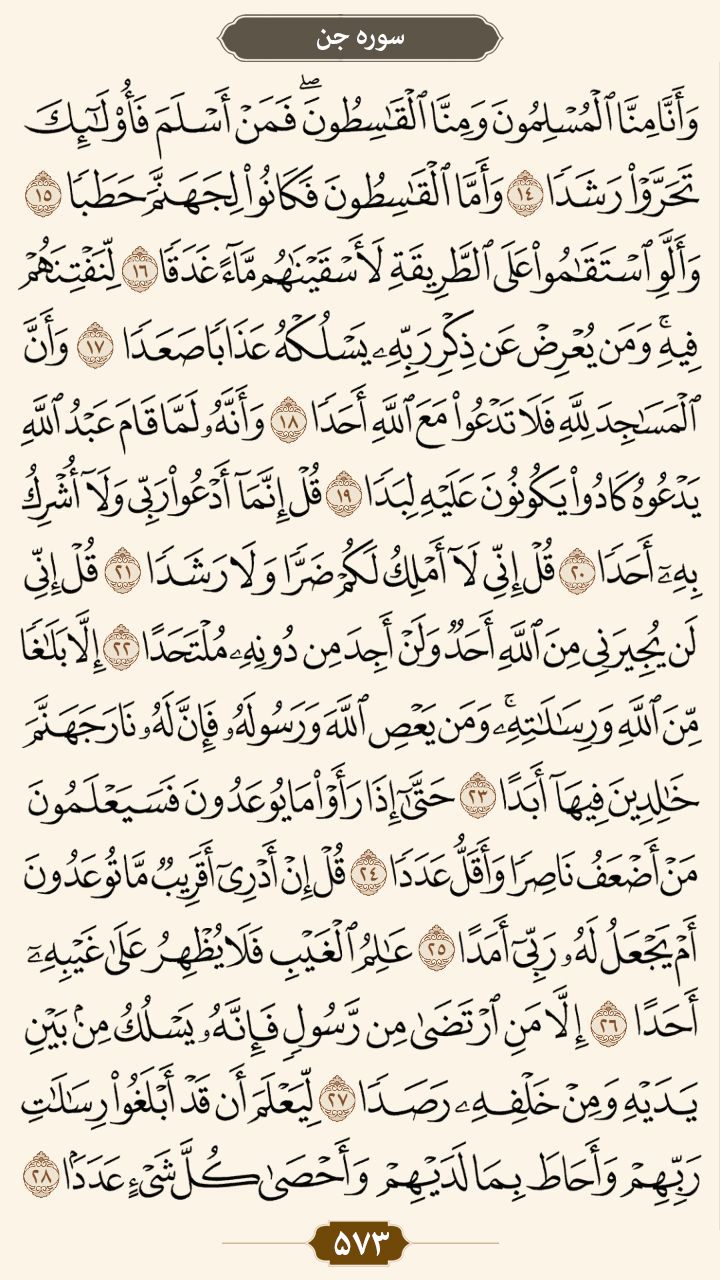 سوره جن
وَأَنَّا مِنَّا ٱلْمُسْلِمُونَ وَمِنَّا ٱلْقَٰسِطُونَۖ فَمَنْ أَسْلَمَ فَأُو۟لَٰٓئِكَ
تَحَرَّوْا۟ رَشَدًا ١٤ وَأَمَّا ٱلْقَٰسِطُونَ فَكَانُوا۟ لِجَهَنَّمَ حَطَبًا ١٥
وَأَلَّوِ ٱسْتَقَٰمُوا۟ عَلَى ٱلطَّرِيقَةِ لَأَسْقَيْنَٰهُم مَّآءً غَدَقًا ١٦ لِّنَفْتِنَهُمْ
فِيهِۚ وَمَن يُعْرِضْ عَن ذِكْرِ رَبِّهِۦ يَسْلُكْهُ عَذَابًا صَعَدًا ١٧ وَأَنَّ
ٱلْمَسَٰجِدَ لِلَّهِ فَلَا تَدْعُوا۟ مَعَ ٱللَّهِ أَحَدًا ١٨ وَأَنَّهُۥ لَمَّا قَامَ عَبْدُ ٱللَّهِ
يَدْعُوهُ كَادُوا۟ يَكُونُونَ عَلَيْهِ لِبَدًا ١٩ قُلْ إِنَّمَآ أَدْعُوا۟ رَبِّى وَلَآ أُشْرِكُ
بِهِۦٓ أَحَدًا ٢٠ قُلْ إِنِّى لَآ أَمْلِكُ لَكُمْ ضَرًّا وَلَا رَشَدًا ٢١ قُلْ إِنِّى
لَن يُجِيرَنِى مِنَ ٱللَّهِ أَحَدٌ وَلَنْ أَجِدَ مِن دُونِهِۦ مُلْتَحَدًا ٢٢ إِلَّا بَلَٰغًا
مِّنَ ٱللَّهِ وَرِسَٰلَٰتِهِۦۚ وَمَن يَعْصِ ٱللَّهَ وَرَسُولَهُۥ فَإِنَّ لَهُۥ نَارَ جَهَنَّمَ
خَٰلِدِينَ فِيهَآ أَبَدًا ٢٣ حَتَّىٰٓ إِذَا رَأَوْا۟ مَا يُوعَدُونَ فَسَيَعْلَمُونَ
مَنْ أَضْعَفُ نَاصِرًا وَأَقَلُّ عَدَدًا ٢٤ قُلْ إِنْ أَدْرِىٓ أَقَرِيبٌ مَّا تُوعَدُونَ
أَمْ يَجْعَلُ لَهُۥ رَبِّىٓ أَمَدًا ٢٥ عَٰلِمُ ٱلْغَيْبِ فَلَا يُظْهِرُ عَلَىٰ غَيْبِهِۦٓ
أَحَدًا ٢٦ إِلَّا مَنِ ٱرْتَضَىٰ مِن رَّسُولٍ فَإِنَّهُۥ يَسْلُكُ مِنۢ بَيْنِ
يَدَيْهِ وَمِنْ خَلْفِهِۦ رَصَدًا ٢٧ لِّيَعْلَمَ أَن قَدْ أَبْلَغُوا۟ رِسَٰلَٰتِ
رَبِّهِمْ وَأَحَاطَ بِمَا لَدَيْهِمْ وَأَحْصَىٰ كُلَّ شَىْءٍ عَدَدًۢا ٢٨
۵۷۳